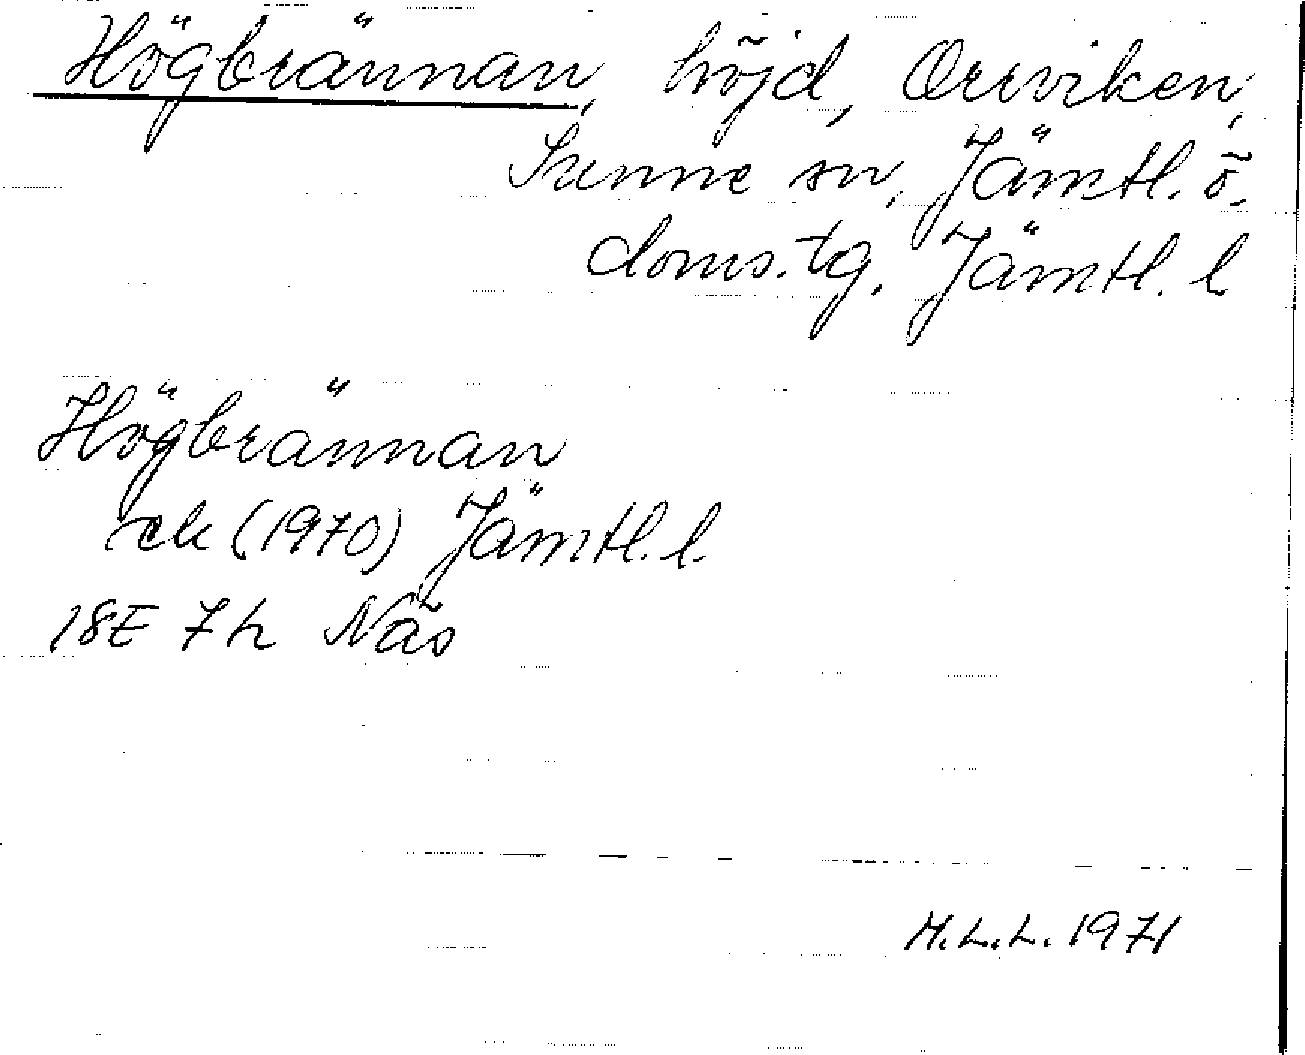 Högbrännan, höjd, Orrviken,
Sunne sn, Jämtl. ö.
doms.tg, Jämtl. l
Högbrännan
rek (1970) Jämtl. l.
18E 7h Näs
M.L.L. 1971